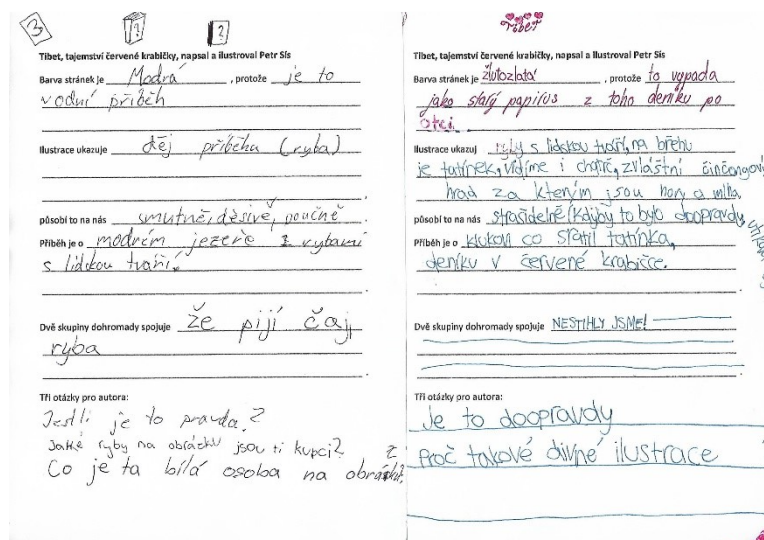 3
?
?
Tibet, tajemství červené krabičky, napsal a ilustroval Petr Sís
Barva stránek je Modrá , protože je to
vodní příběh
Ilustrace ukazuje děj příběhu (ryba)
působí to na nás smutně, děsivě, poučně
Příběh je o modrém jezeře z rybami
s lidskou tváří.
Dvě skupiny dohromady spojuje že pijí čaj
ryba
Tři otázky pro autora:
Jestli je to pravda?
Jaké ryby na obrázku jsou ti kupci?
Co je ta bílá osoba na obrázku?
TibET
Tibet, tajemství červené krabičky, napsal a ilustroval Petr Sís
Barva stránek je žlutozlatá , protože to vypada
jako starý papirus z toho deníku po
otci.
Ilustrace ukazuj ryby s lidskou tváří, na břehu
je tatínek, vidíme i chatrč, zvláštní činčangový
hrad za kterým jsou hory a mlha.
působí to na nás strašidelně (kdyby to bylo doopravdy,
Příběh je o klukovi co slátil tatínka,
deníku v červené krabičce.
Dvě skupiny dohromady spojuje NESTIHLY JSME!
Tři otázky pro autora:
Je to doopravdy
Proč takové divné ilustrace